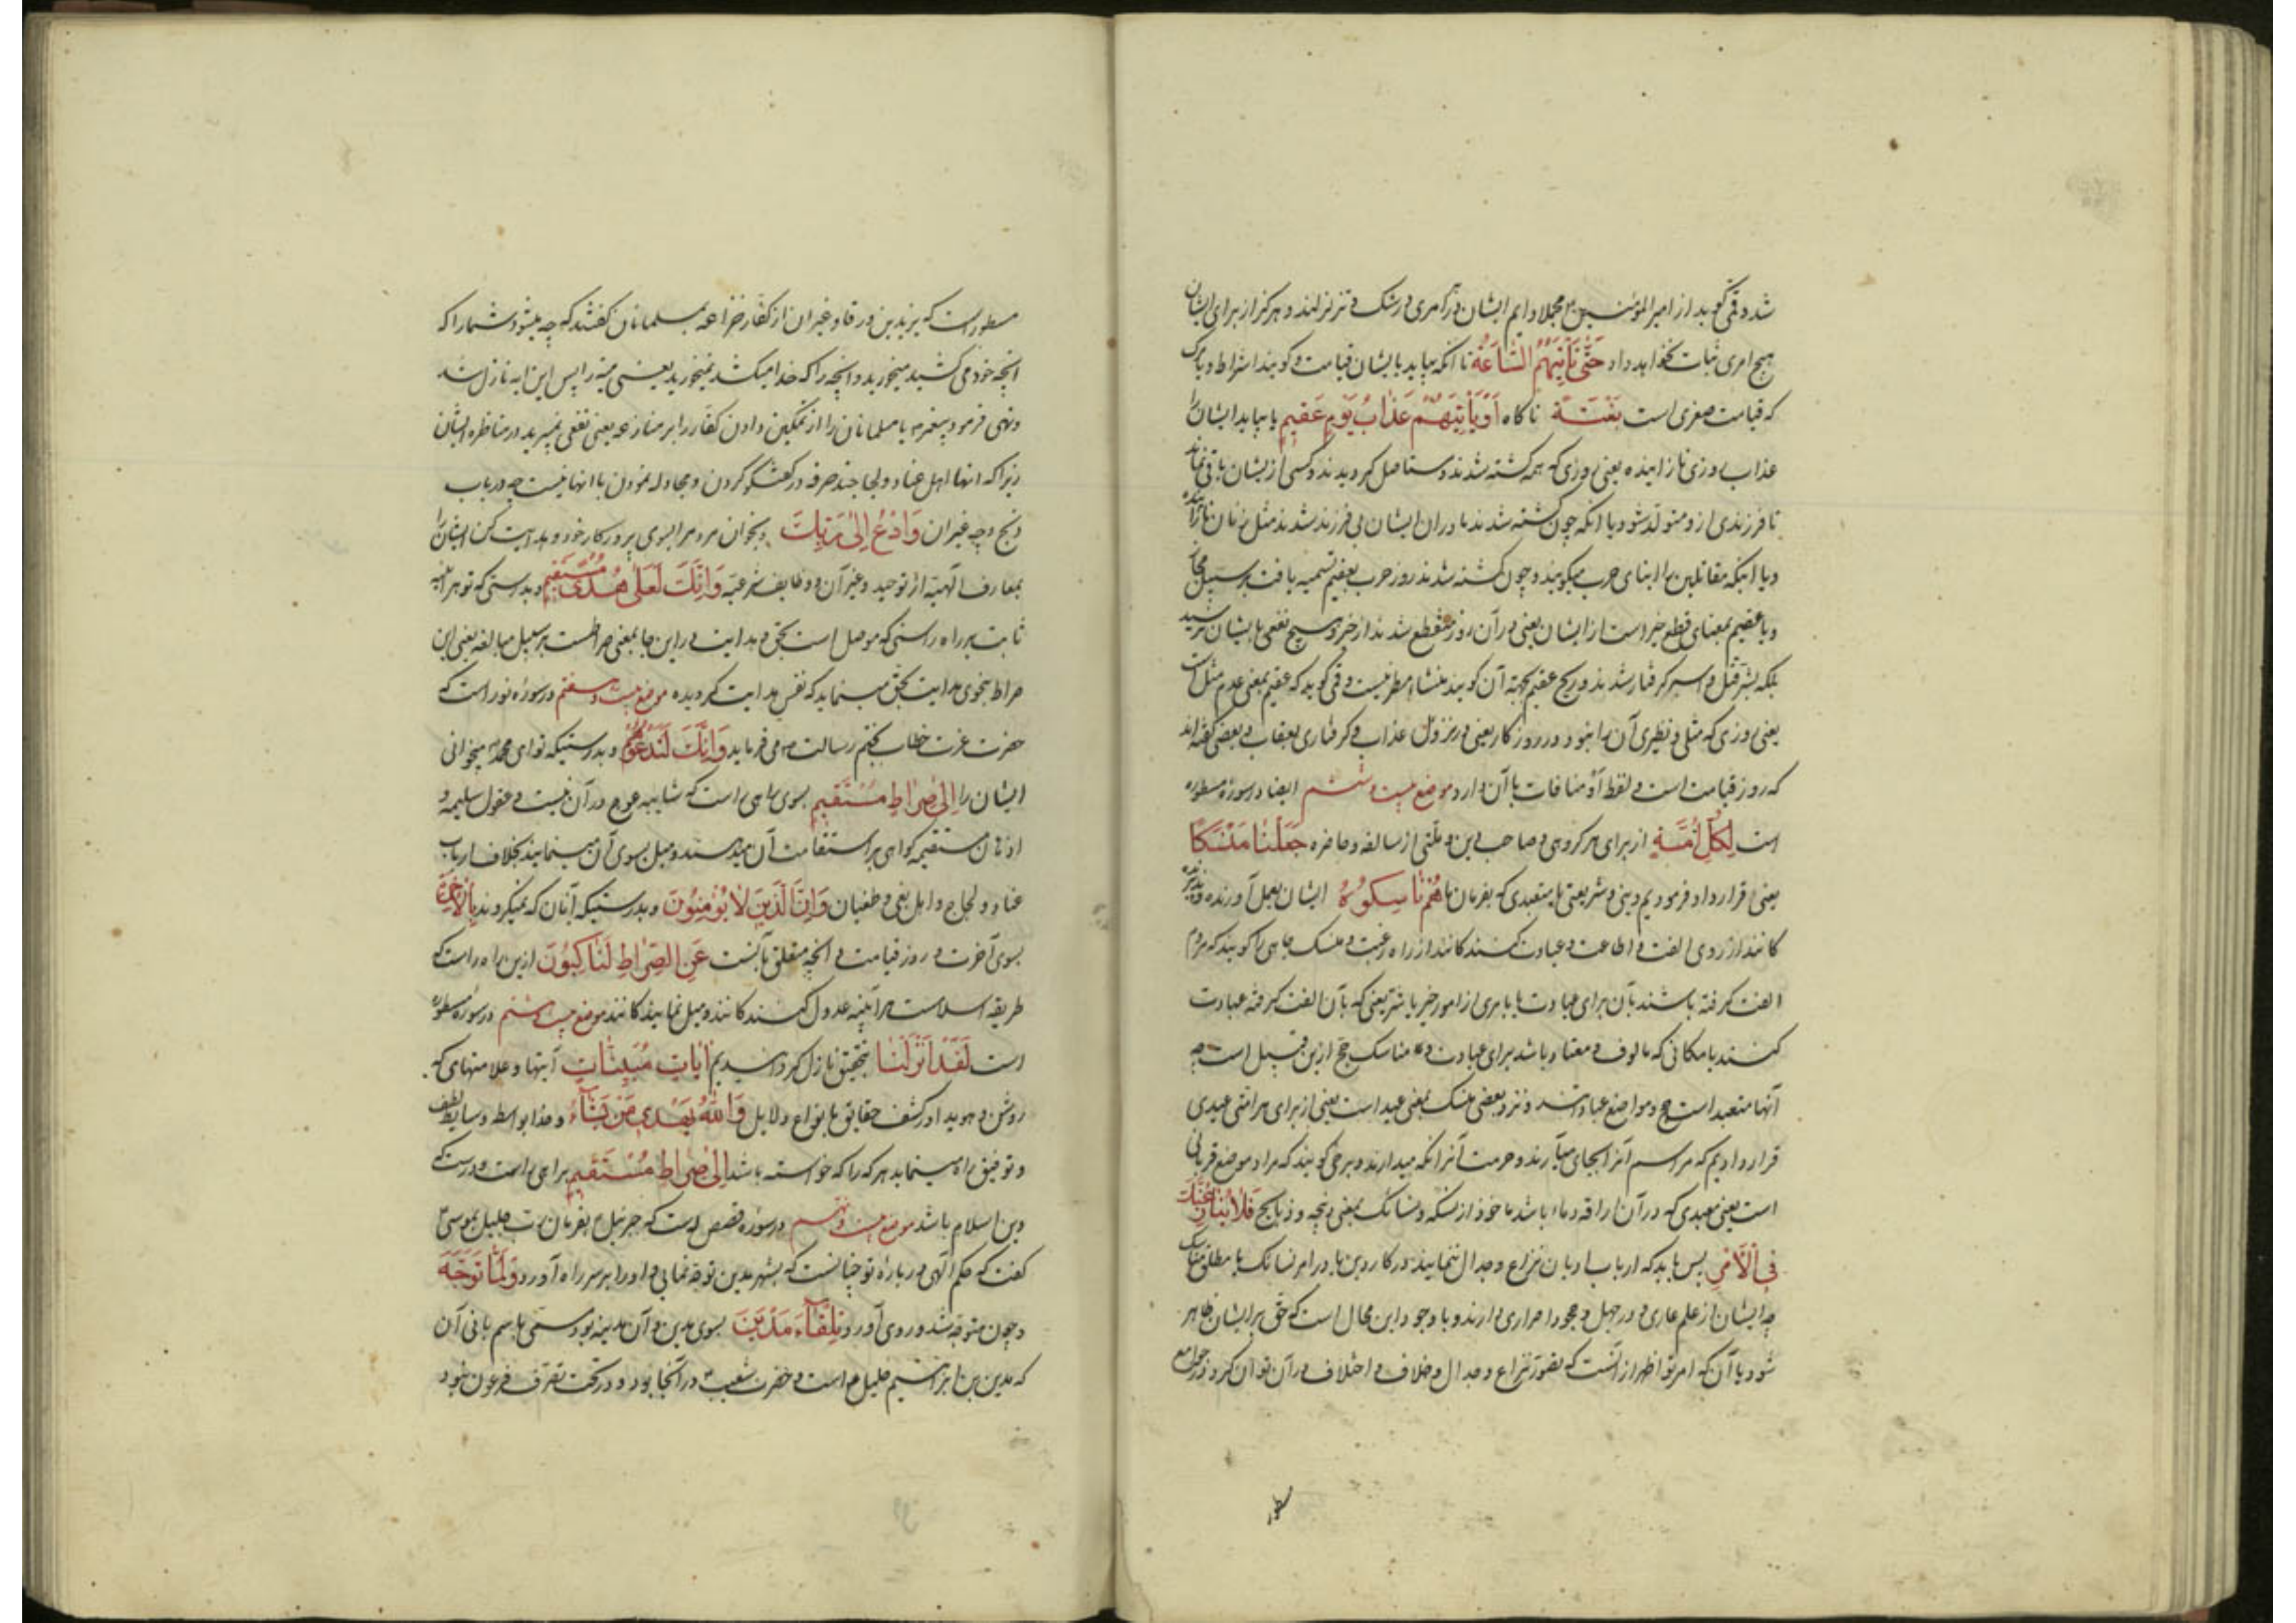 شد و قمی گوید از امیر المؤمنین مجملا دایم ایشان در امری در شک و تزلزلند و هرگز از برای ایشان
هیچ امری ثبات نخواهد داد حَتّٰى تَأْتِيَهُمُ السّٰاعَةُ تا آنکه بیاید بایشان قیامت و گویند اشراط و یا مرگ
که قیامت صغری است بَغْتَةً ناکاه أَوْ يَأْتِيَهُمْ عَذٰابُ يَوْمٍ عَقِيمٍ یا بیاید ایشان را
عذاب روزی نازاینده یعنی روزی که همه کشته شدند و مستاصل کردیدند و کسی از یشان باقی نماند
تا فرزندی از و متولد شود و یا آنکه چون کشته شدند مادران ایشان بی فرزند شدند مثل زنان نازاینده
و یا اینکه مقاتلین را ابنای حرب میکویند و چون کشته شدند روز حرب بعقیم تسمیه یافت بر سبیل مجاز
و یا عقیم بمعنای قطع خیر است از ایشان یعنی در آن روز منقطع شدند از خیر و هیچ نفعی بایشان نرسید
بلکه بشر قتل و اسر کرفتار شدند و ریح عقیم بجهة آن کویند منشاء مطر نیست و قمی کوید که عقیم بمعنی عدم مثل است
یعنی روزی که مثل و نظیری آن را نبود در روزکار یعنی در نزول عذاب و کرفتاری بعقاب و بعضی کفته اند
که روز قیامت است و لفظ أو منافات با آن دارد موضع بیست و ششم ایضا در سوره مسطوره
است لِكُلِّ أُمَّةٍ از برای هر کروهی و صاحب دین و ملتی از سالفه و حاضره جَعَلْنٰا مَنْسَكًا
یعنی قرار داد فرمودیم دینی و شریعتی یا متعبدی که بفرمان ما هُمْ نٰاسِكُوهُ ایشان بعمل آورنده و پذیرنده
کانند از روی الفت و اطاعت و عبادت کنند کانند از راه رغبت و منسک جاهی را کویند که مردم
الفت کرفته باشند بآن برای عبادت یا بامری از امور خیر یا شر یعنی که بآن الفت کرفته عبادت
کنند یا مکانی که مالوف و معتاد باشد برای عبادت و مناسک حج ازین قبیل است چه
آنها متعبد است حج و مواضع عبادتند و نزد بعضی منسک بمعنی عید است یعنی از برای هر امتی عیدی
قرار دادیم که مراسم آنرا بجای میآرند و حرمت آنرا نکه میدارند و برخی کویند که مراد موضع قربانی
است یعنی معبدی که در آن اراقه دماء باشد ماخوذ از نسکه و نسائک بمعنی ذبحه و ذبایح فَلاٰ يُنٰازِعُنَّكَ
فِي الْأَمْرِ پس باید که ارباب ادیان نزاع و جدال ننمایند در کار دین یا در امر نسائک یا مطلق مناسک
چه ایشان از علم عاری و در جهل و جحود اصراری دارند و با وجود این محال است که حق بر ایشان ظاهر
شود یا آن که امر تو اظهر از آنست که تصور نزاع و جدال و خلاف و اختلاف در آن توان کرد و در جوامع
مسطور
مسطور است که بزید بن ورقا و غیر ان از کفار خزاعه بمسلمانان کفتند که چه میشود شما را که
انچه خود می کشید میخورید و انچه را که خدا میکشد نمیخورید یعنی میته را پس این ایه نازل شد
و نهی فرمود پیغمبر یا مسلمانان را از تمکین دادن کفار را بر منازعه یعنی نفعی نمیبرید در مناظره ایشان
زیرا که انها اهل عناد و لجاجند صرفه در کفتکو کردن و مجادله نمودن با انها نیست چه در باب
ذبح و چه غیر ان وَ ادْعُ إِلىٰ رَبِّكَ و بخوان مردم را بسوی پروردکار خود و هدایت کن ایشان را
بمعارف الهیة از توحید و غیر آن و وظایف شرعیه وَ إِنَّكَ لَعَلىٰ هُدًى مُسْتَقِيمٍ و بدرستی که تو هر آینه
ثابت بر راه راستی که موصل است بحق و هدایت در این جا بمعنی صراطست بر سبیل مبالغه یعنی این
صراط بنحوی هدایت بحق مینماید که نفس هدایت کردیده موضع بیست و هفتم در سوره نور است که
حضرت عزت خطاب بختم رسالت می فرماید وَ إِنَّكَ لَتَدْعُوهُمْ و بدرستیکه تو ای محمد میخوانی
ایشان را إِلىٰ صِرٰاطٍ مُسْتَقِيمٍ بسوی راهی راست که شایبه عوج در آن نیست و عقول سلیمه و
اذهان مستقیمه کواهی بر استقامت آن میدهند و میل بسوی آن مینمایند بخلاف ارباب
عناد و لجاج و اهل بغی و طغیان وَ إِنَّ الَّذِينَ لاٰ يُؤْمِنُونَ و بدرستیکه آنان که نمیکروند بِالْآخِرَةِ
بسوی آخرت و روز قیامت و انچه متعلق بآنست عَنِ الصِّرٰاطِ لَنٰاكِبُونَ ازین راه راست که
طریقه اسلامست هر آینه عدول کنند کانند و میل نمایند کانند موضع بیست و هشتم در سوره مسطوره
است لَقَدْ أَنْزَلْنٰا بتحقیق نازل کردانیدیم آيٰاتٍ مُبَيِّنٰاتٍ آیتها و علامتهای که
روشن و هویدا در کشف حقایق بانواع دلایل وَ اللّٰهُ يَهْدِي مَنْ يَشٰاءُ و خدا بواسطه وسایط لطف
و توفیق راه مینماید هر که را که خواسته باشد إِلىٰ صِرٰاطٍ مُسْتَقِيمٍ براهی راست و درست که
دین اسلام باشد موضع بیست و نهم در سوره قصص است که جبرئیل بفرمان رب جلیل بموسی
کفت که حکم الهی در باره تو چنانست که بشهر مدین توجه نمایی و او را بر سر راه آورد وَ لَمّٰا تَوَجَّهَ
و چون متوجه شد و روی آورد تِلْقٰاءَ مَدْيَنَ بسوی مدین و آن مدینه بود مسمی باسم بانی آن
که مدین بن ابراهیم خلیل است و حضرت شعیب در آنجا بود و در تحت تصرف فرعون نبود